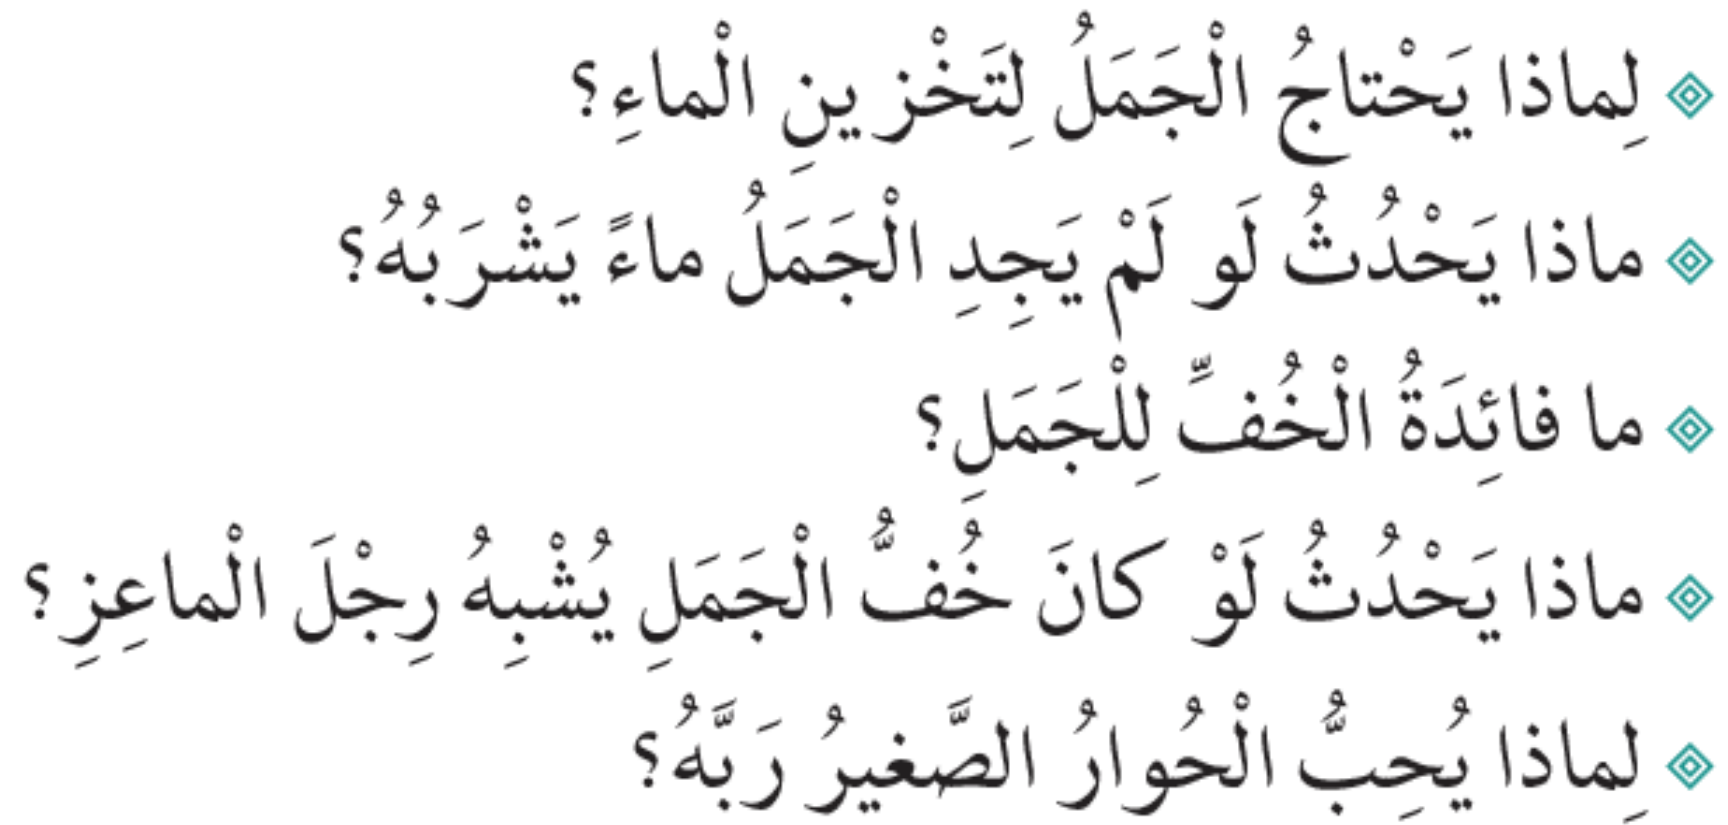 لِماذا يَحْتاجُ الْجَمَلُ لِتَخْزينِ الْماءِ؟
ماذا يَحْدُثُ لَو لَمْ يَجِدِ الْجَمَلُ ماءً يَشْرَبُهُ؟
ما فائِدَةُ الْخُفِّ لِلْجَمَلِ؟
ماذا يَحْدُثُ لَوْ كانَ خُفُّ الْجَمَلِ يُشْبِهُ رِجْلَ الْماعِزِ؟
لِماذا يُحِبُّ الْحُوارُ الصَّغيرُ رَبَّهُ؟